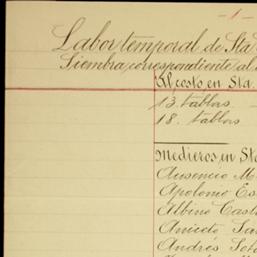 -1-
Labor temporal de Sta
Siembra, correspondiente al
Al costo en Sta.
13 tablors
18. tablors
Medieros en Sta
Ausencio M
Apolonio Es
Albino Cast
Aniceto Sa
Andrés Soto